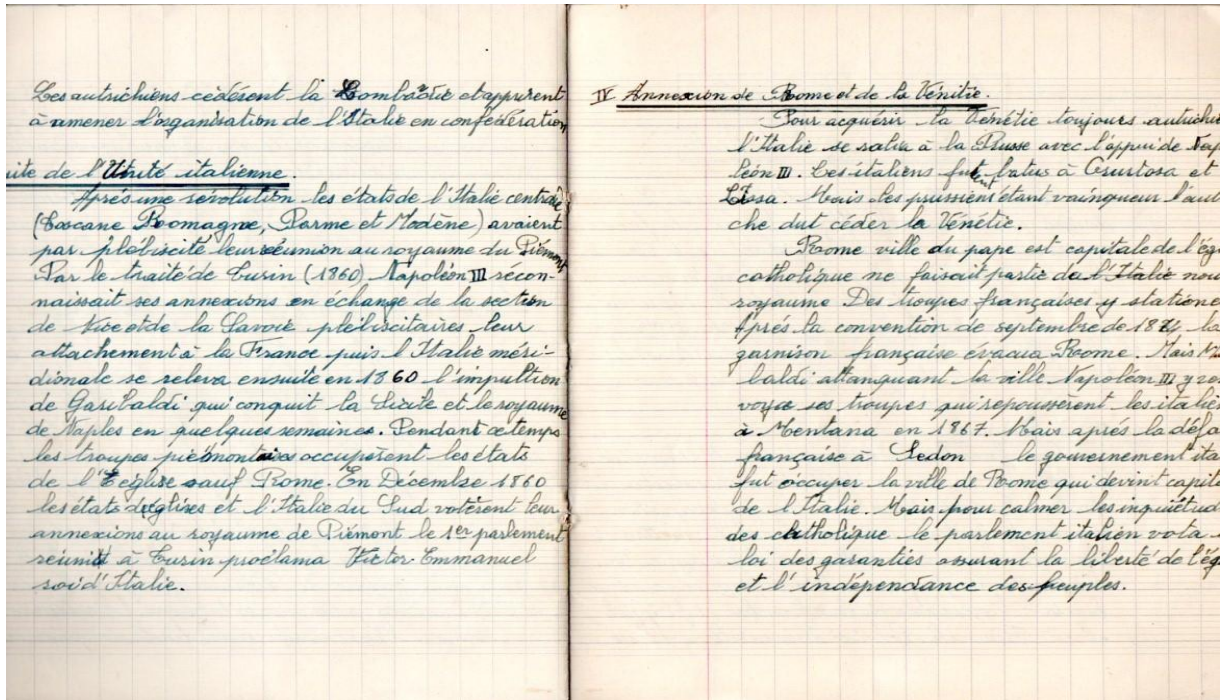 Les autrichiens cédèrent la Lombardie et apprirent
à amener l'organisation de l'Italie en confédération
uite de l'Unité italienne.
Après une révolution les états de l'Italie centrale
(Toscane Romagne, Parme et Modène) avaient
par plébiscite leur réunion au royaume du Piémont
Par le traité de Turin (1860) Napoléon III récon-
naissait ses annexions en échange de la section
de Nice et de la Savoie plébiscitaires leur
attachement à la France puis l'Italie méri-
dionale se releva ensuite en 1860 l'impultion
de Garibaldi qui conquit la Sicile et le royaume
de Naples en quelques semaines. Pendant ce temps
les troupes piémontaises occupèrent les états
de l'Eglise sauf Rome. En Décembre 1860
les états d'églises et l'Italie du Sud votèrent leur
annexions au royaume de Piémont le 1er parlement
réunit à Turin proclama Victor-Emmanuel
roi d'Italie.
IV Annexion de Rome et de la Vénitie.
Pour acquérir la Vénétie toujours autrichie
l'Italie se salia à la Prusse avec l'appui de Nap
léon III. Les italiens furent batus à et
Lissa. Mais les prussiens étant vainqueur l'aut
che dut céder la Vénétie.
Rome ville du pape est capitale de l'égl
catholique ne faisait partie de l'Italie nou
royaume Des troupes françaises y statione
Après la convention de septembre de la
garnison française évacua Rome. Mais
baldi attanquant la ville Napoléon III y ren
voya ses troupes qui repoussèrent les italie
à Mentana en 1867. Mais après la défai
française à Sedon le gouvernement ita
fut occuper la ville de Rome qui devint capita
de l'Italie. Mais pour calmer les inquiétud
des catholique le parlement italien vota
loi des garanties assurant la liberté de l'égl
et l'indépendance des peuples.